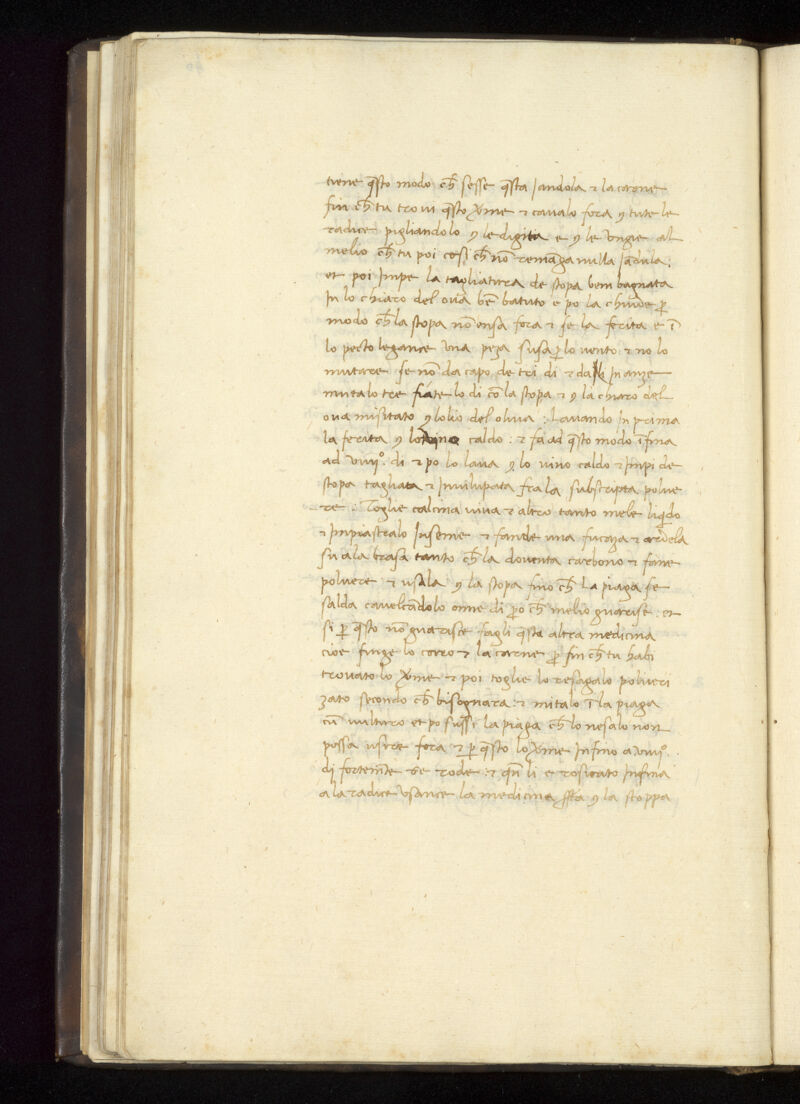 tiene q̄sto modo ch̄ fesse q̄sta jandola ⁊ la carne
fin ch̄ tu trovi q̄sto v̄me ⁊ cavalo fora ꝯ tute le
radice pigliandolo ꝯ le digita e ꝯ le vngie al
melio ch̄ tu poi cosi ch̄ nō remāga nulla jādula:
et poi jmpe la tagliatura de stopa bem bagnata
jn lo chiaro del ova bē batuto e po la chiude ꝑ
modo ch̄ la stopa nō ensa fora ⁊ se la ferita e ī
lo pecto legance vna peza susa ꝑ lo vento: ⁊ no lo
mutare se nō da capo de tri di ⁊ da li jnanze
mutalo tre fiate lo di cō la stopa ⁊ ꝯ la chiaro del
ova misitato ꝯ lolio del oliva: Lavando jn prima
la ferita ꝯ lo vino caldo: ⁊ fa ad q̄sto modo īfina
ad viiij°. di ⁊ po lo lava ꝯ lo vino caldo ⁊ jmpi de
stopa tagliata ⁊ jnvilupata fra la subscripta polve
re: Toglie calcina viva ⁊ altro tanto mele liq̄do
⁊ jmpiastralo jnseme ⁊ fande una fucaza ⁊ ardela
su a la brasa tanto ch̄ la doventa carbono ⁊ fane
polvere ⁊ usala ꝯ la stopa fino ch̄ la piaga se
salda cavelcādolo omne di ꝑo ch̄ melio guarise: et
si ꝑ q̄sto nō guarisce fagli q̄sta altra medicina
cioe finge lo corro ⁊ la carne ꝑ fin ch̄ tu habi
trovato lo v̄me ⁊ poi toglie lo resagalo polveri
zato secondo ch̄ bisognara: ⁊ mitalo ī la piaga
cū vulturo et po fusse la piaga ch̄ lo nesalo non
possa usire fora ⁊ ꝑ q̄sto lo v̄me jnfino a viiij°.
di fortemēte se rode: ⁊ qn̄ li e rosicato jnfina
a la radice usance la medicina ꝓsta ꝯ la stoppa